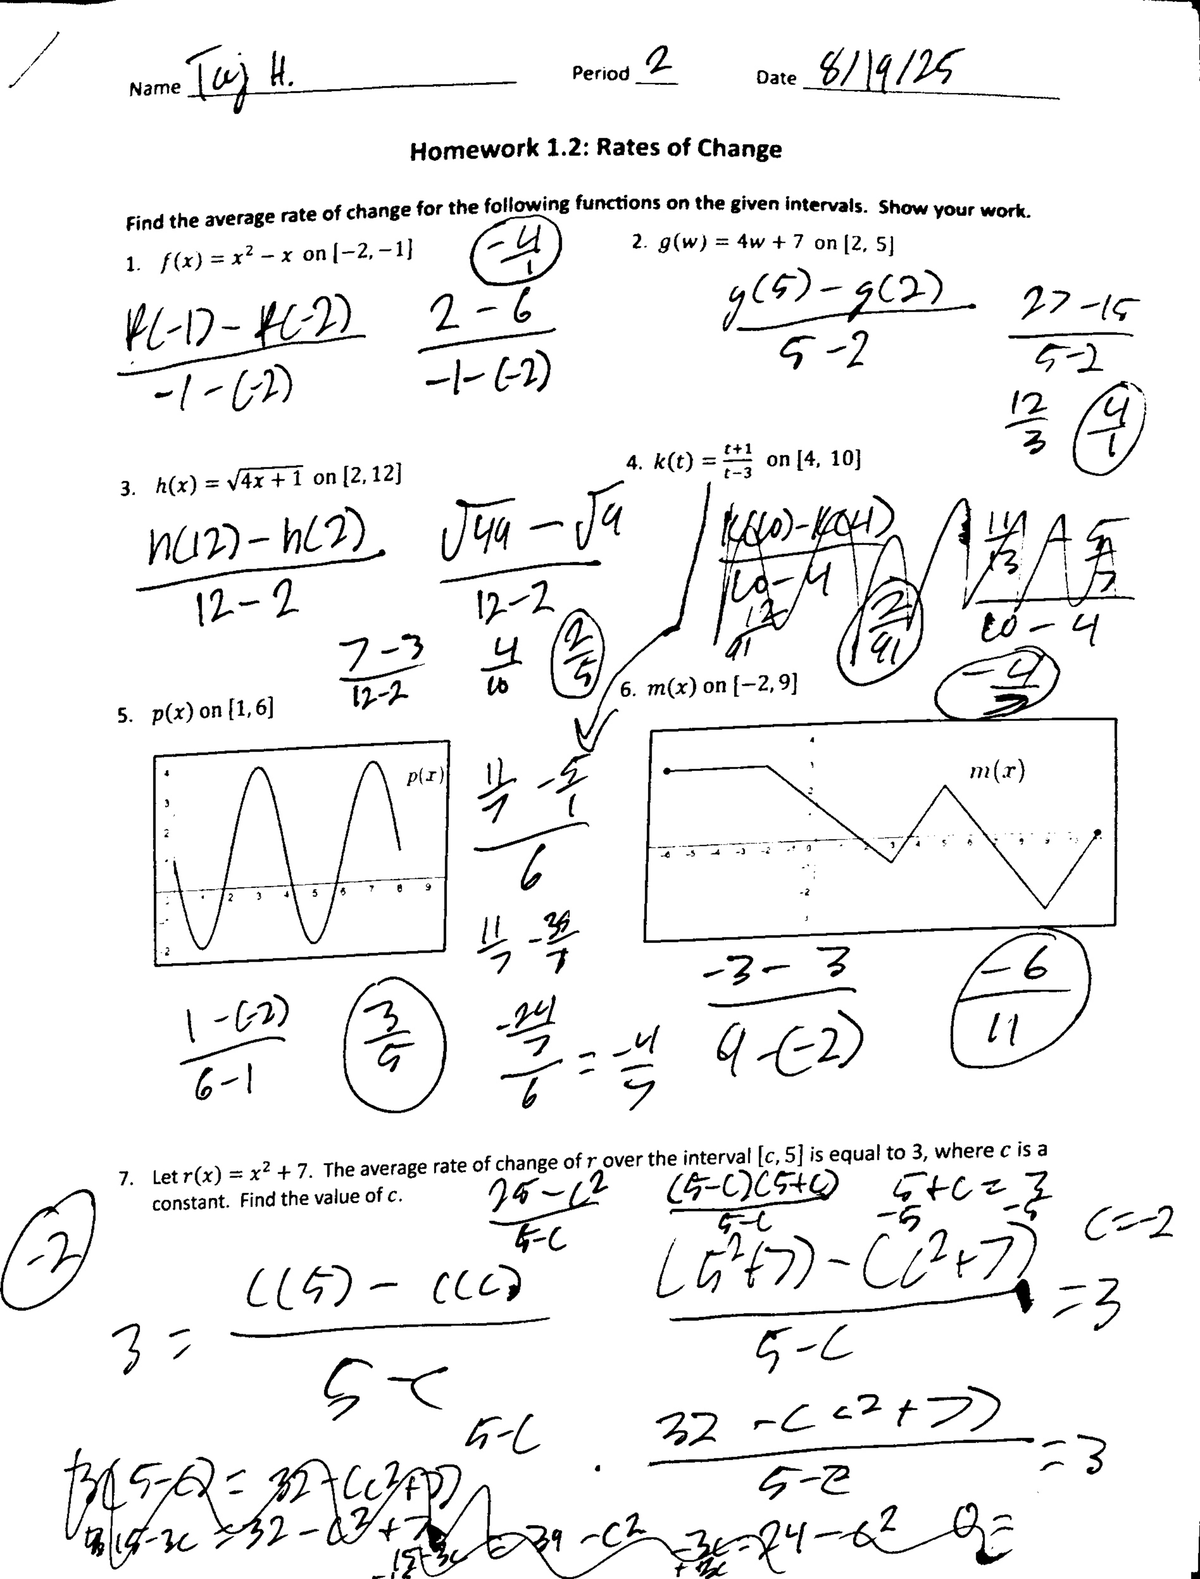 Name Taj H. Period 2 Date 8/19/25
Homework 1.2: Rates of Change
Find the average rate of change for the following functions on the given intervals. Show your work.
1. f(x) = x² − x on [−2, −1]
-4/1
f(-1) - f(-2)
-1 - (-2)
2 - 6
-1 - (-2)
2. g(w) = 4w + 7 on [2, 5]
g(5) - g(2)
5 - 2
27 - 15
5 - 2
12/3
4/1
3. h(x) = √4x + 1 on [2, 12]
h(12) - h(2)
12 - 2
√49 - √9
12 - 2
7 - 3
12 - 2
4/10
2/5
4. k(t) = t+1/t−3 on [4, 10]
k(10) - k(4)
10 - 4
12/91
2/91
10 - 4
-4/7
11/7 - 5/1
6
11/7 - 35/7
-24/7
6
= -4/7
5. p(x) on [1, 6]
p(x)
4
3
2
2 3 4 5 6 7 8 9
-2
1 - (-2)
6 - 1
3/5
6. m(x) on [−2, 9]
m(x)
4
2
-6 -5 -4 -3 -2 -1 0
3 4 5 6
-2
-3 - 3
9 - (-2)
-6
11
7. Let r(x) = x² + 7. The average rate of change of r over the interval [c, 5] is equal to 3, where c is a
constant. Find the value of c.
25 - c²
5 - c
(5-c)(5+c)
5-c
5 + c = 3
-5 -5
c = -2
-2
3 =
r(5) - r(c)
5 - c
(5²+7) - (c²+7)
5 - c
= 3
5-c
32 - (c²+7)
5-c
= 3
3(5-c) = 32 - (c²+7)
15-3c = 32 - c² + 7
39 - c²
-3c = 24 - c²
+3c
0 =